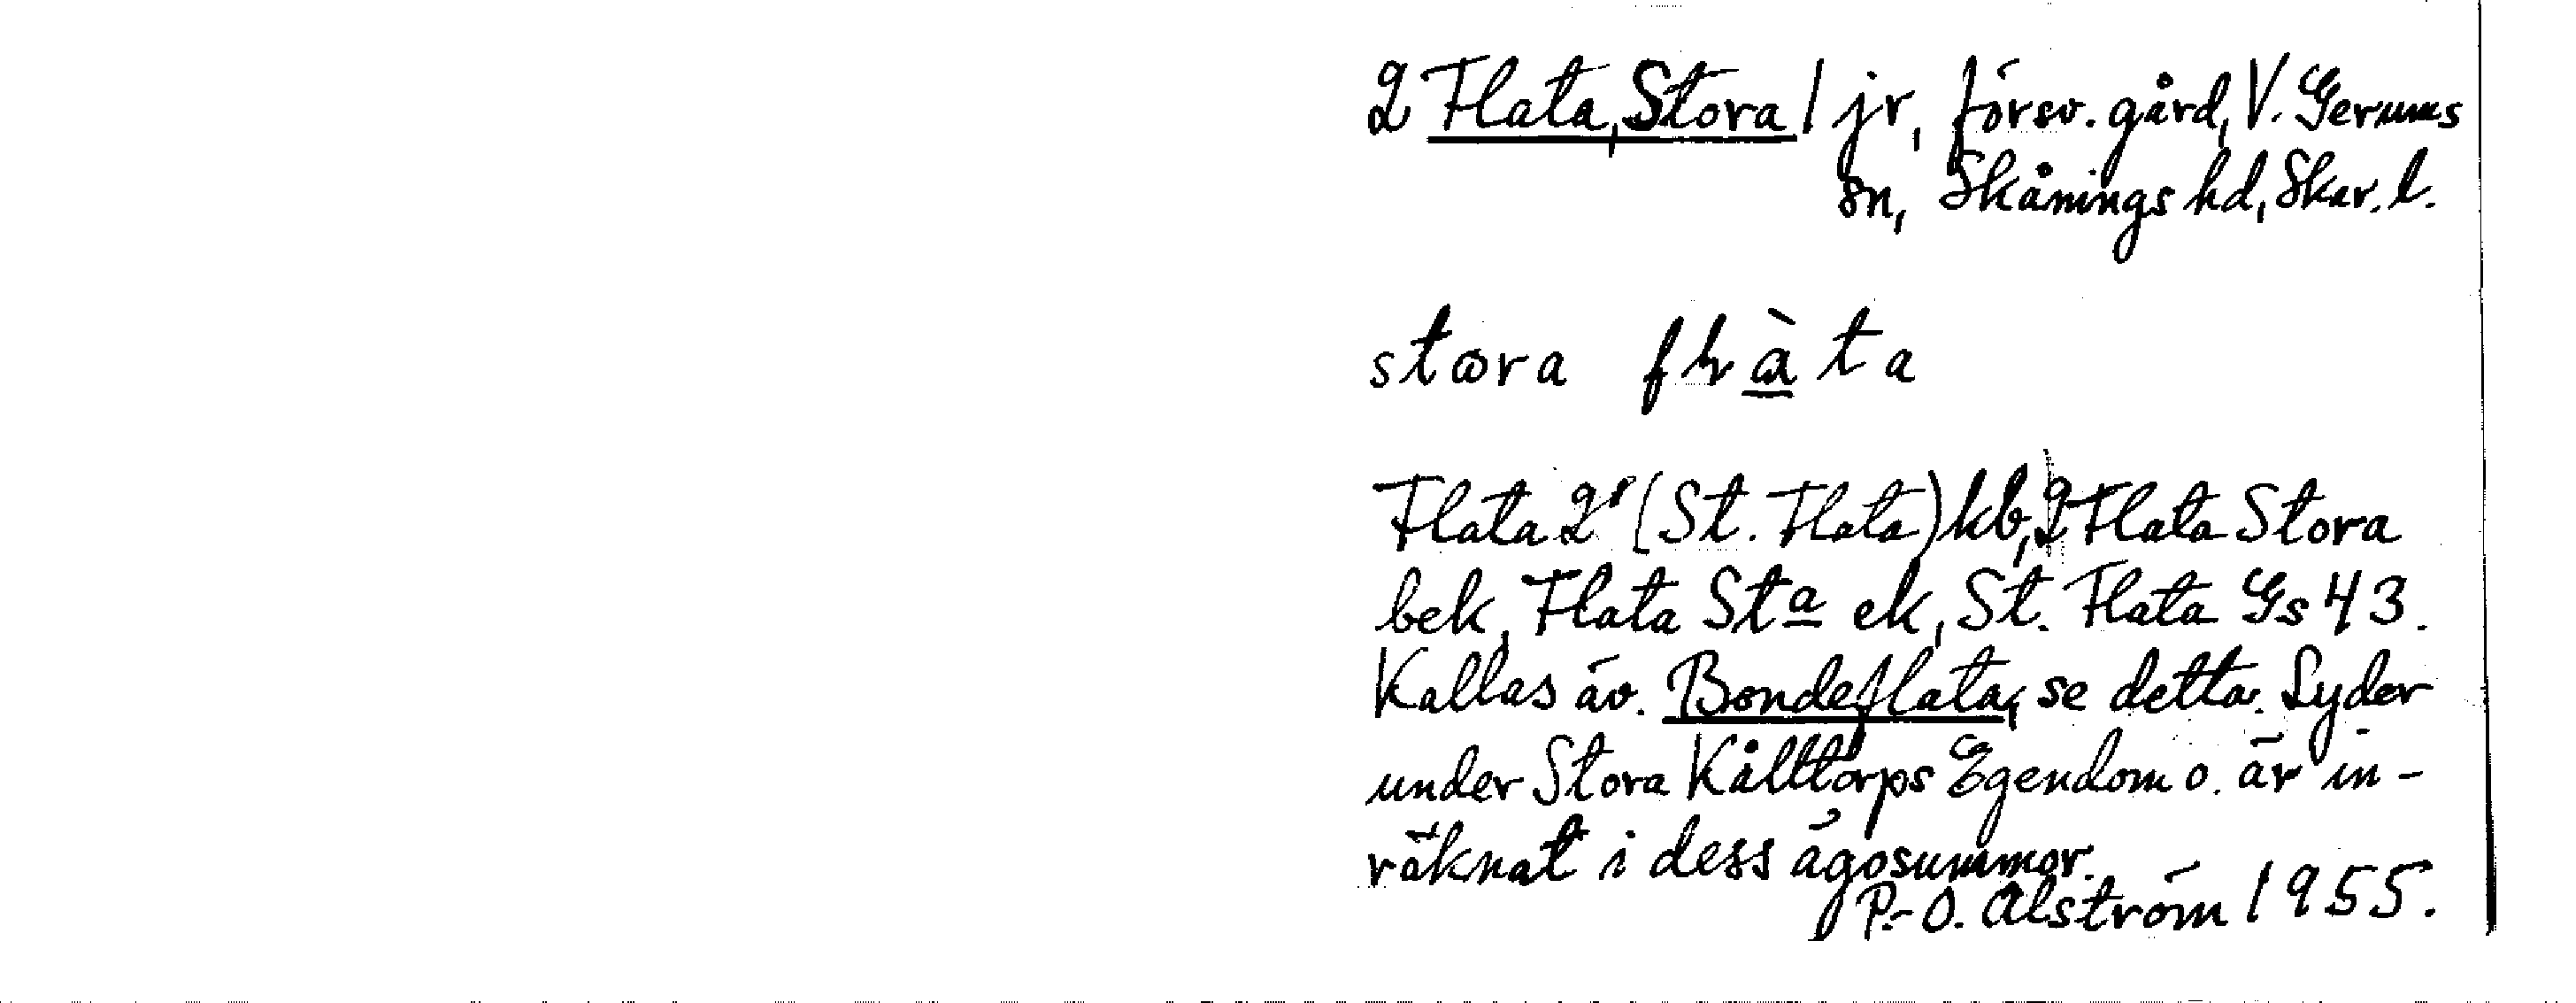 2 Flata, Stora 1 jr, försv. gård, V. Gerums
sn, Skånings hd, Skar. l.
stora flàta
Flata 2' (St. Flata) kb, 2 Flata Stora
bek, Flata Sta ek, St. Flata Gs 43.
Kallas äv. Bondeflata, se detta. Lyder
under Stora Kålltorps Egendom o. är in-
räknat i dess ägosummor.
P.-O. Alström 1955.